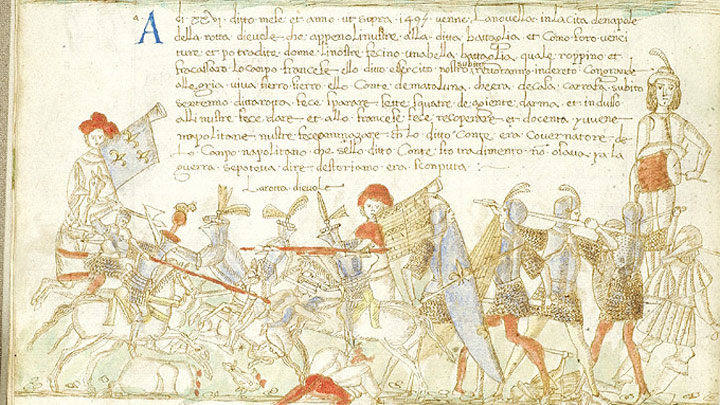 A di XXVI ditto mese et anno ut supra 1495 venne Lanovella in la Cita de napole
della rotta dievole che appeno li nostre alla ditta battaglia et Como foro venci
ture et po tradite donne li nostre fecino una bella battaglia quale roppino et
fracassaro lo campo francese ello ditto esercito nostro subito revoranno indereto
allegria viva fierro fierro ello Conte de mataluna de casa Carrafa subito
sentenno ditta rotta fece sparare sette squatre de gente darma et indusso
alli nustre fece dare et allo francese fece recoperare et docenta iuvene
napolitane nustre fece ammazare lo ditto Conte era Governatore de
Lo Campo napolitano che sello ditto Conte sto tradimento no usava la
guerra se poteva dire de storiamo era sconputa
La rotta dievole